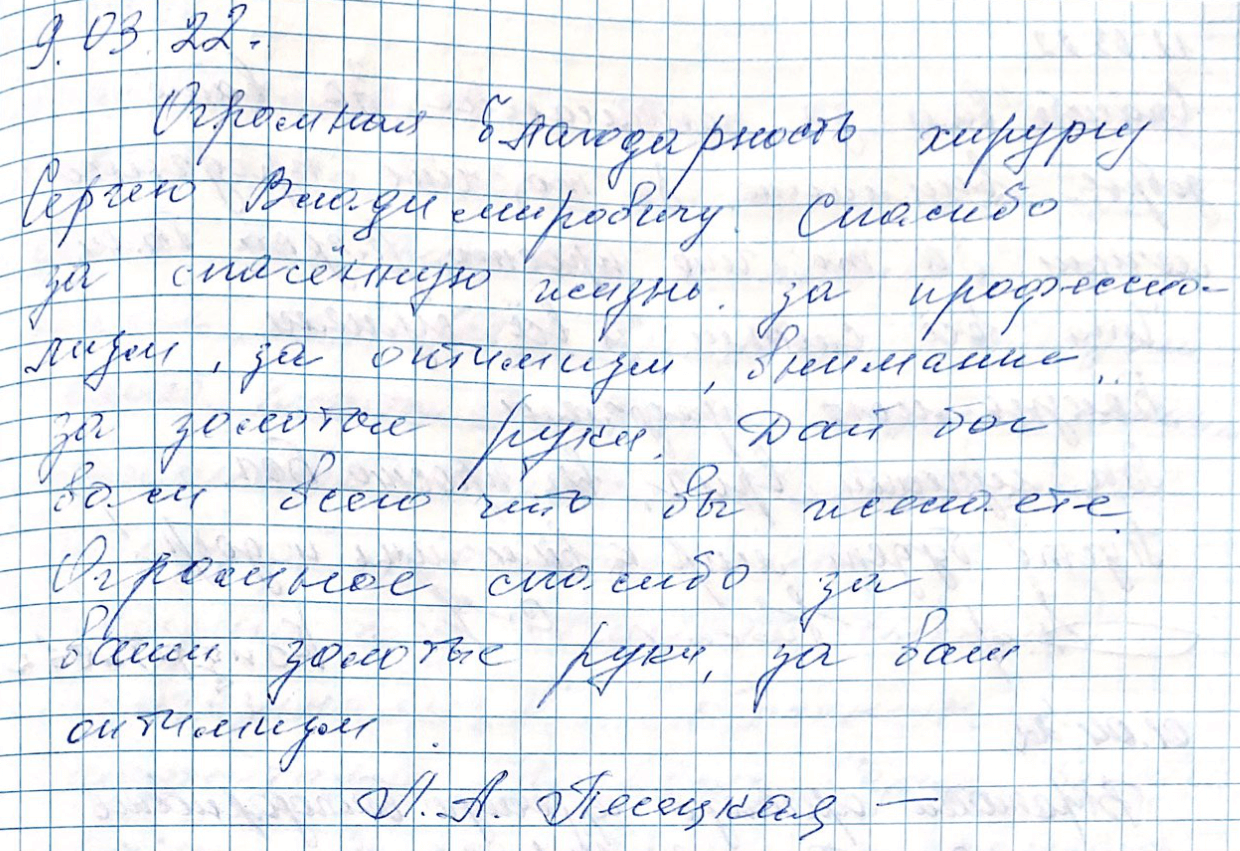 9.03.22.
Огромная благодарность хирургу
Сергею Владимировичу. Спасибо
за спасённую жизнь. за професио-
лизм, за оптимизм, внимание,
за золотые руки. Дай бог
вам всего что вы желаете.
Огромное спасибо за
ваши золотые руки, за ваш
оптимизм.
Л.А.